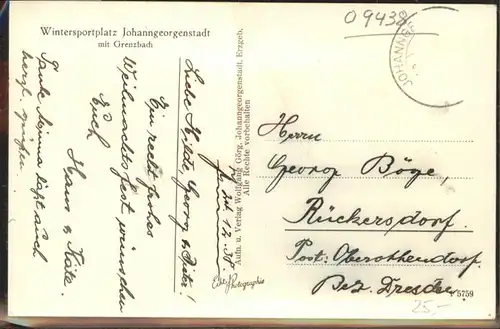 Wintersportplatz Johanngeorgenstadt
mit Grenzbach
09438
JOHANNG
Liebe Hilde, Georg u. Dieter!
Ein recht frohes
Weihnachtsfest wünschen
Euch
Hans u. Käte.
Tante Minna läßt auch
herzl. grüßen.
Aufn. u. Verlag Wolfgang Görg, Johanngeorgenstadt, Erzgeb.
Alle Rechte vorbehalten
Echte Photographie
Herrn
George Böge,
Rückersdorf.
Post: Oberottendorf.
Bez. Dresden
5759
25,-